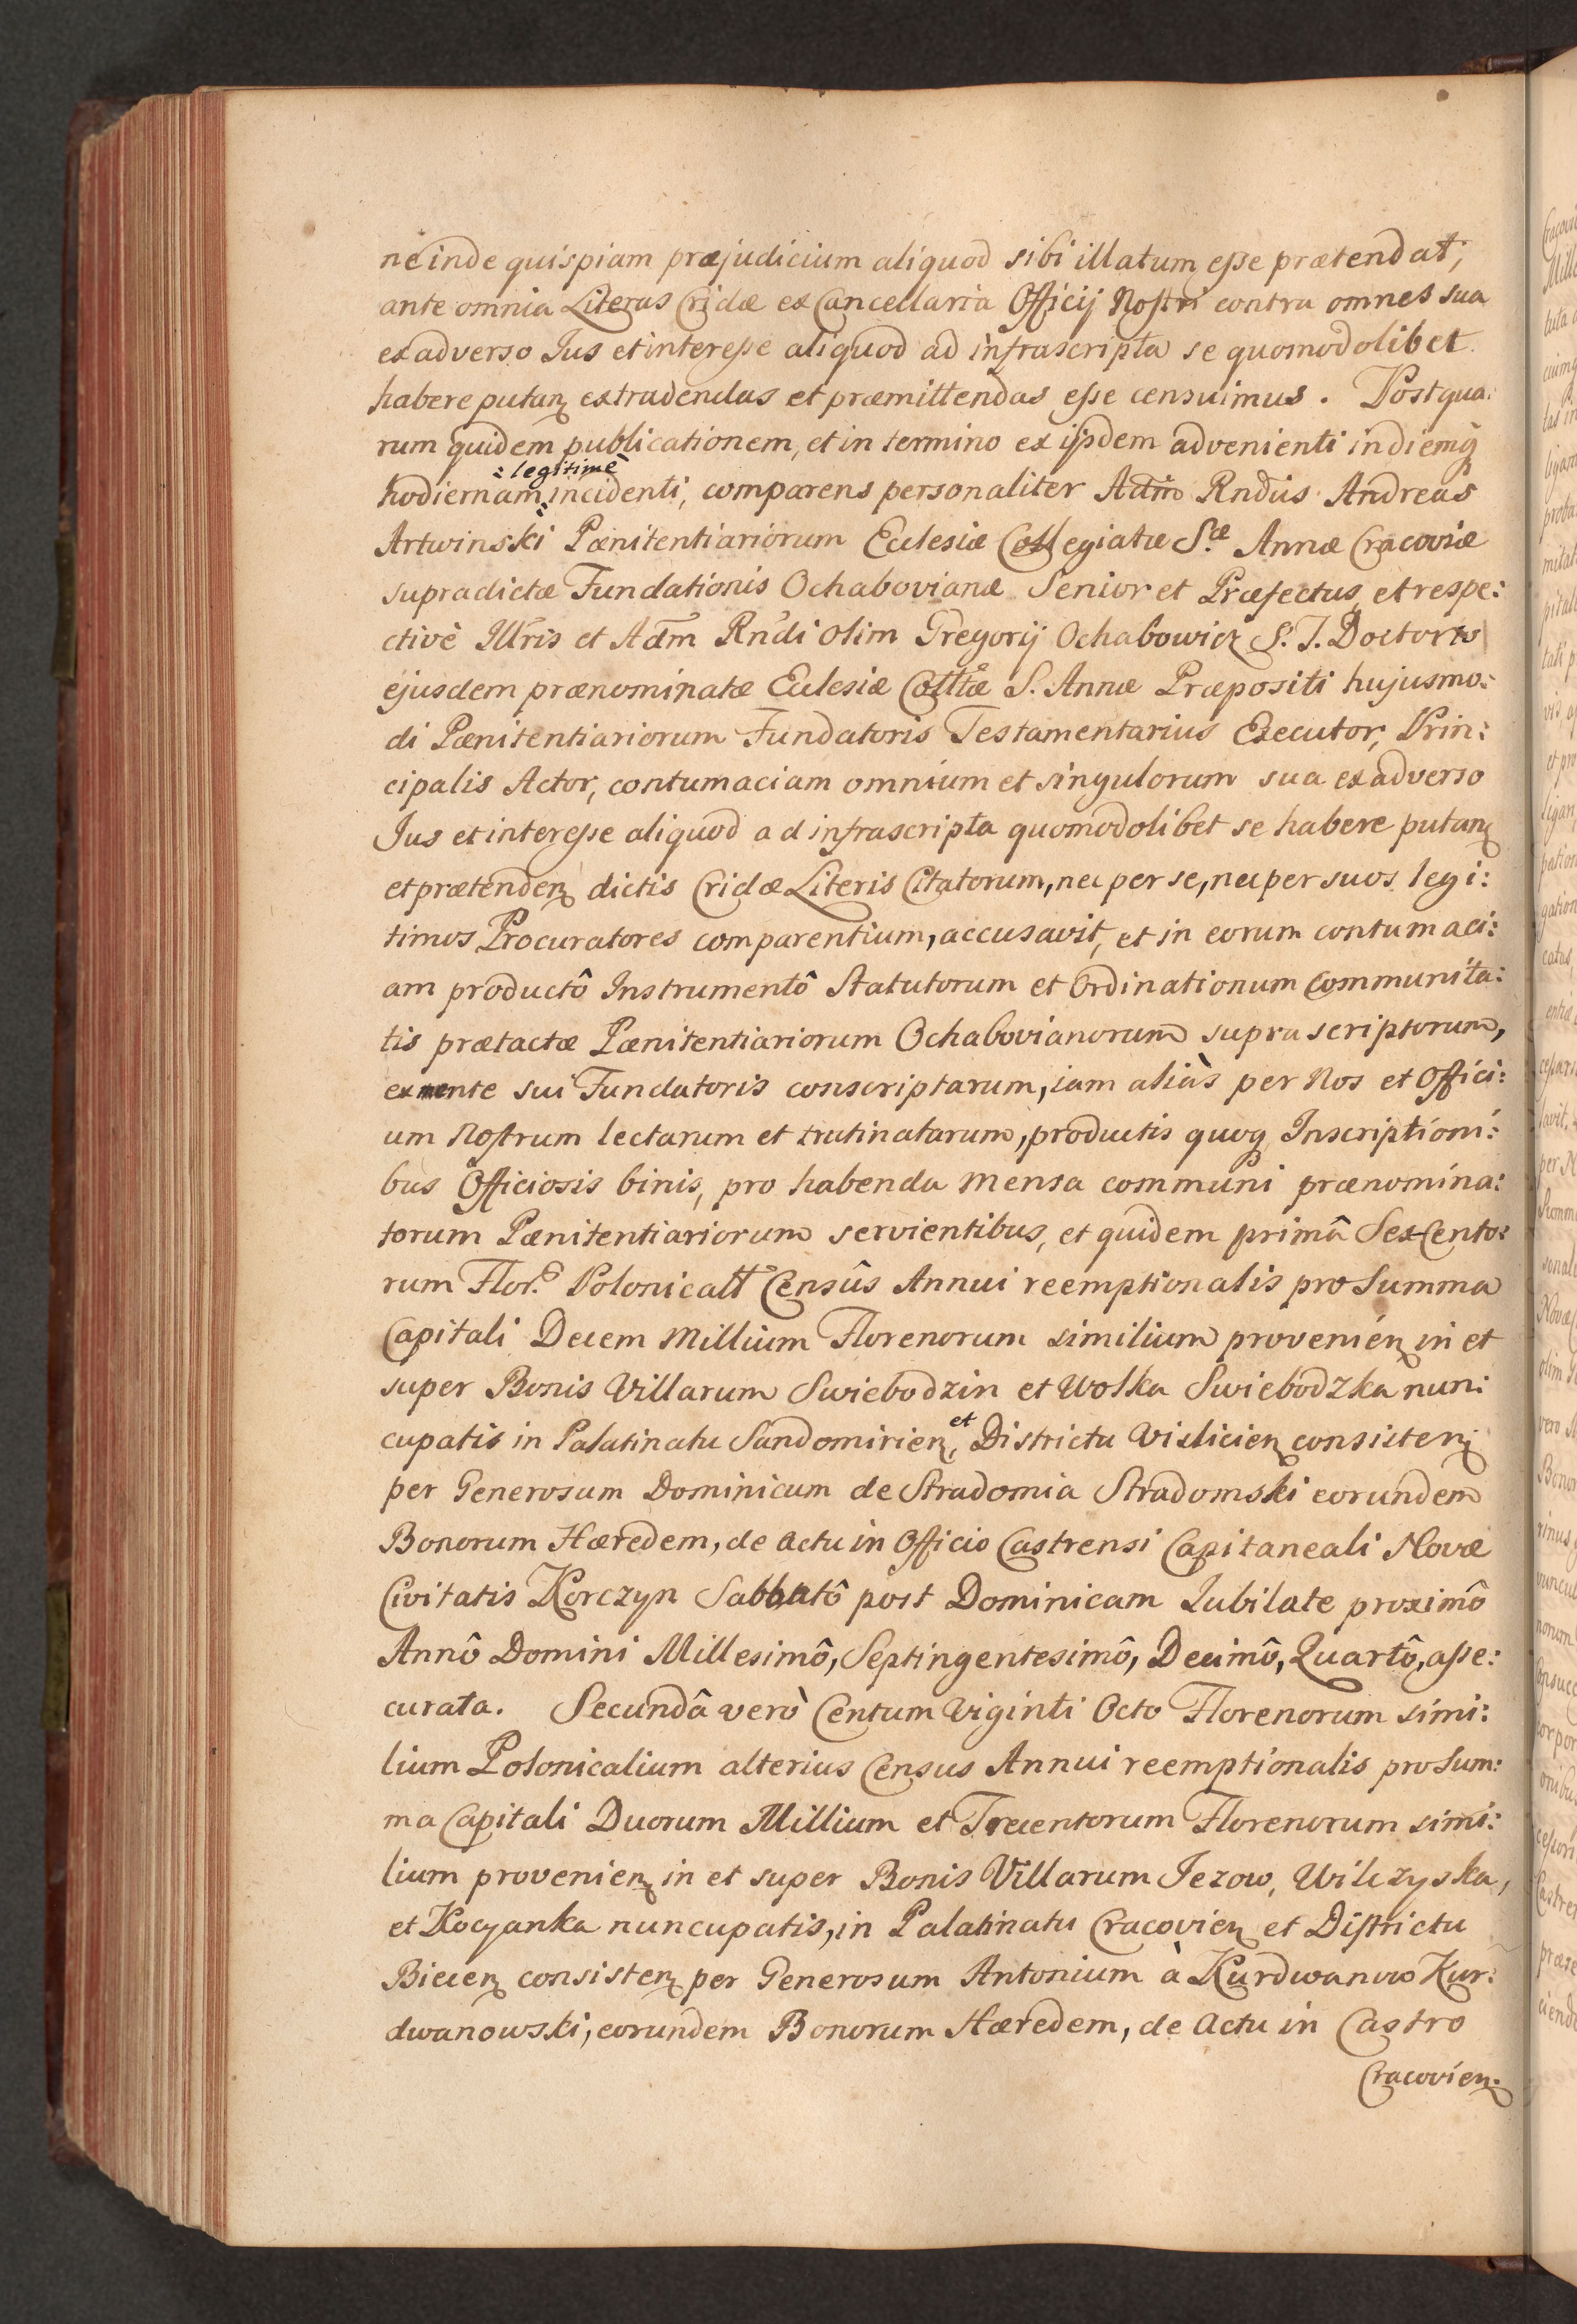 ne inde quispiam præjudicium aliquod sibi illatum esse prætendat;
ante omnia Literas Cridæ ex Cancellaria Officij Nostri contra omnes sua
ex adverso Jus et interesse aliquod ad infrascripta se quomodolibet
habere putan extradendas et præmittendas esse censuimus. Postqua:
rum quidem publicationem, et in termino ex ijsdem advenienti in diemq
legitimè
hodiernam incidenti, comparens personaliter Adm Rndus Andreas
Artwinski Pænitentiariorum Ecclesiæ Collegiatæ S.æ Annæ Cracoviæ
supradictæ Fundationis Ochabovianæ Senior et Præfectus, et respe:
ctivè Illris et Adm Rndi olim Gregorij Ochabowicz S. T. Doctoris
ejusdem prænominatæ Ecclesiæ Colltæ S. Annæ Præpositi hujusmo:
di Pænitentiariorum Fundatoris Testamentarius Executor, Prin:
cipalis Actor, contumaciam omnium et singulorum sua ex adverso
Jus et interesse aliquod ad infrascripta quomodolibet se habere putan
et prætenden dictis Cridæ Literis Citatorum, nec per se, nec per suos legi:
timos Procuratores comparentium, accusavit, et in eorum contumaci:
am productô Instrumentô Statutorum et Ordinationum Communita:
tis prætactæ Pænitentiariorum Ochabovianorum supra scriptorum,
ex mente sui Fundatoris conscriptarum, iam aliàs per Nos et Offici:
um Nostrum lectarum et trutinatarum, productis quoq Inscriptioni:
bus Officiosis binis, pro habenda mensa communi prænomina:
torum Pænitentiariorum servientibus, et quidem primâ Sex Cento:
rum Flor. Polonicall Censûs Annui reemptionalis pro Summa
Capitali Decem Millium Florenorum similium provenien in et
super Bonis Villarum Swiebodzin et Wolka Swiebodzka nun:
cupatis in Palatinatu Sandomirien, et Districtu Vislicien consisten
per Generosum Dominicum de Stradomia Stradomski eorundem
Bonorum Hæredem, de actu in Officio Castrensi Capitaneali Novæ
Civitatis Korczyn Sabbatô post Dominicam Jubilate proximô
Annô Domini Millesimô, Septingentesimô, Decimô, Quartô, asse:
curata. Secundâ verò Centum Viginti Octo Florenorum simi:
lium Polonicalium alterius Census Annui reemptionalis pro Sum:
ma Capitali Duorum Millium et Trecentorum Florenorum simi:
lium provenien in et super Bonis Villarum Jezow, Wilczyska,
et Kocyanka nuncupatis, in Palatinatu Cracovien et Districtu
Biecen consisten per Generosum Antonium à Kurdwanow Kur:
dwanowski, eorundem Bonorum Hæredem, de actu in Castro
Cracovien.